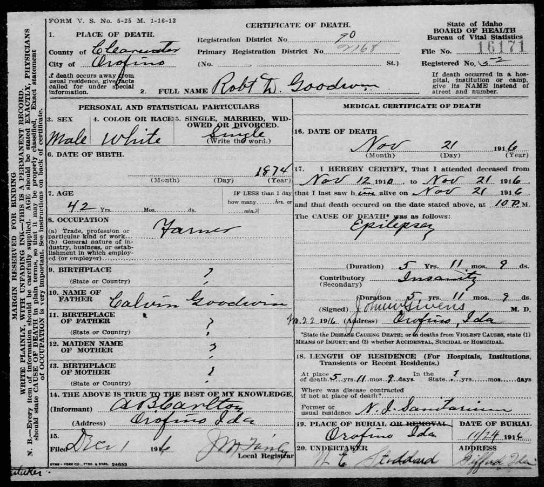 FORM V. S. No. 5-25 M. 1-16-12
CERTIFICATE OF DEATH.
State of Idaho
BOARD OF HEALTH
Bureau of Vital Statistics
1. PLACE OF DEATH.
Registration District No. 90
County of Clearwater
Primary Registration District No. 2168
File No. 16171
City of Orofino
(No. St.)
Registered No. 52
If death occurs away from usual residence, give facts called for under special information.
2. FULL NAME Robt W. Goodwin
If death occurred in a hospital, institution or camp, give its NAME instead of street and number.
PERSONAL AND STATISTICAL PARTICULARS
3. SEX
4. COLOR OR RACE
5. SINGLE, MARRIED, WIDOWED OR DIVORCED.
Male White Single
(Write the word.)
6. DATE OF BIRTH.
1874
(Month) (Day) (Year)
7. AGE
IF LESS than 1 day
how many hrs. or
42 Yrs. Mos. ds. min.?
8. OCCUPATION
(a) Trade, profession or particular kind of work Farmer
(b) General nature of industry, business, or establishment in which employed (or employer)
9. BIRTHPLACE
(State or Country) ?
10. NAME OF FATHER Calvin Goodwin
11. BIRTHPLACE OF FATHER ?
(State or Country)
12. MAIDEN NAME OF MOTHER ?
13. BIRTHPLACE OF MOTHER ?
(State or Country)
14. THE ABOVE IS TRUE TO THE BEST OF MY KNOWLEDGE.
(Informant) Carlton
(Address) Orofino Ida
15.
Filed Dec 1 1916
Local Registrar
MEDICAL CERTIFICATE OF DEATH
16. DATE OF DEATH
Nov 21 1916
(Month) (Day) (Year)
17. I HEREBY CERTIFY, That I attended deceased from
Nov 12 1910 to Nov 21 1916
that I last saw him alive on Nov 21 1916
and that death occurred on the date stated above, at 10 P.M.
The CAUSE OF DEATH was as follows:
Epilepsy
(Duration) 5 Yrs. 11 mos. 9 ds.
Contributory Insanity
(Secondary)
(Duration) 5 Yrs. 11 mos. 9 ds.
(Signed) John W. Givens M. D.
Nov 22 1916 (Address) Orofino, Ida
*State the DISEASE CAUSING DEATH; or in deaths from VIOLENT CAUSES, state (1) MEANS OF INJURY; and (2) whether ACCIDENTAL, SUICIDAL or HOMICIDAL.
18. LENGTH OF RESIDENCE (For Hospitals, Institutions, Transients or Recent Residents.)
At place of death 5 yrs. 11 mos. 9 days. In the State ? yrs. mos. days.
Where was disease contracted
if not at place of death?
Former or usual residence N. I. Sanitarium
19. PLACE OF BURIAL OR REMOVAL
DATE OF BURIAL
Orofino Ida 1916
20. UNDERTAKER
ADDRESS
Stoddard
MARGIN RESERVED FOR BINDING
WRITE PLAINLY, WITH UNFADING INK—THIS IS A PERMANENT RECORD.
N. B.—Every item of information should be carefully supplied. AGE should be stated EXACTLY. PHYSICIANS should state CAUSE OF DEATH in plain terms, so that it may be properly classified. Exact statement of OCCUPATION is very important. See instructions on back of certificate.